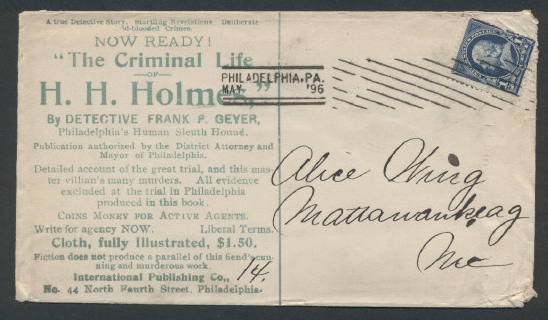 A True Detective Story, Startling Revelations Deliberate
Cold-blooded Crimes.
NOW READY!
"The Criminal Life
—OF—
H. H. Holmes,"
By DETECTIVE FRANK P. GEYER,
Philadelphia's Human Sleuth Hound.
Publication authorized by the District Attorney and
Mayor of Philadelphia.
Detailed account of the great trial, and this mas-
ter villian's many murders. All evidence
excluded at the trial in Philadelphia
produced in this book.
COINS MONEY FOR ACTIVE AGENTS.
Write for agency NOW. Liberal Terms.
Cloth, fully Illustrated, $1.50.
Fiction does not produce a parallel of this fiend's cun-
ning and murderous work.
International Publishing Co.,
No. 44 North Fourth Street, Philadelphia.
14.
PHILADELPHIA, PA.
MAY '96
Alice Wing
Mattawamkeag
Me